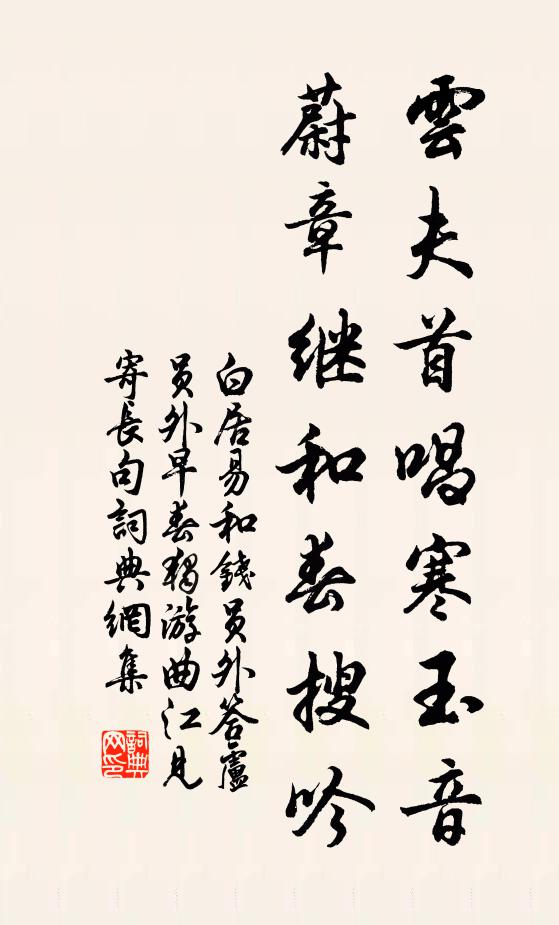 雲夫首唱寒玉音
蔚章继和春搜吟
白居易和錢员外答盧
员外早春獨游曲江見
寄長句詞典網集
詞典
网印